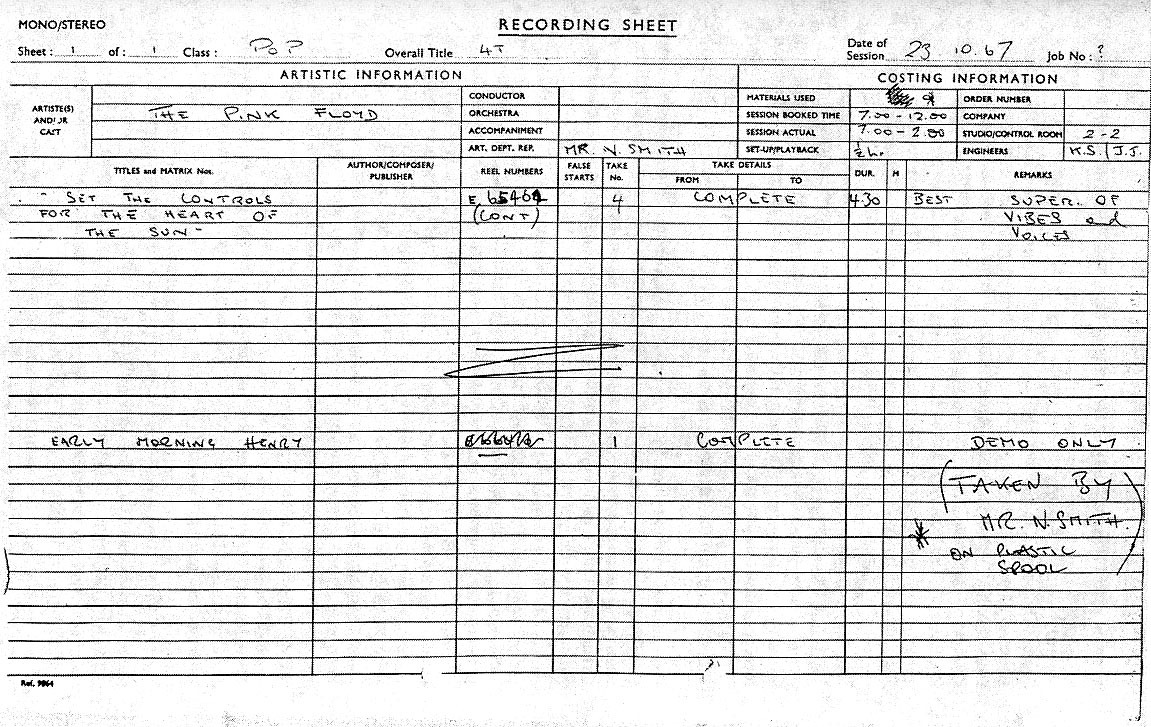 MONO/STEREO
RECORDING SHEET
Sheet: 1 of: 1 Class: POP Overall Title 4T Date of Session 23.10.67 Job No: ?
ARTISTIC INFORMATION
COSTING INFORMATION
ARTISTE(S) AND/OR CAST
THE PINK FLOYD
CONDUCTOR
ORCHESTRA
ACCOMPANIMENT
ART. DEPT. REP. MR. N. SMITH
MATERIALS USED
ORDER NUMBER
SESSION BOOKED TIME 7.00 - 12.00 COMPANY
SESSION ACTUAL 7.00 - 2.00 STUDIO/CONTROL ROOM 2-2
SET-UP/PLAYBACK ½ hr. ENGINEERS K.S. / J.J.
TITLES and MATRIX Nos. AUTHOR/COMPOSER/PUBLISHER REEL NUMBERS FALSE STARTS TAKE No. TAKE DETAILS FROM TO DUR. M REMARKS
"SET THE CONTROLS 4 COMPLETE 4.30 BEST SUPER. OF
FOR THE HEART OF (CONT) VIBES and
THE SUN" VOICES
EARLY MORNING HENRY 1 COMPLETE DEMO ONLY
(TAKEN BY
MR. N. SMITH.
ON PLASTIC
SPOOL)
Ref. 9864